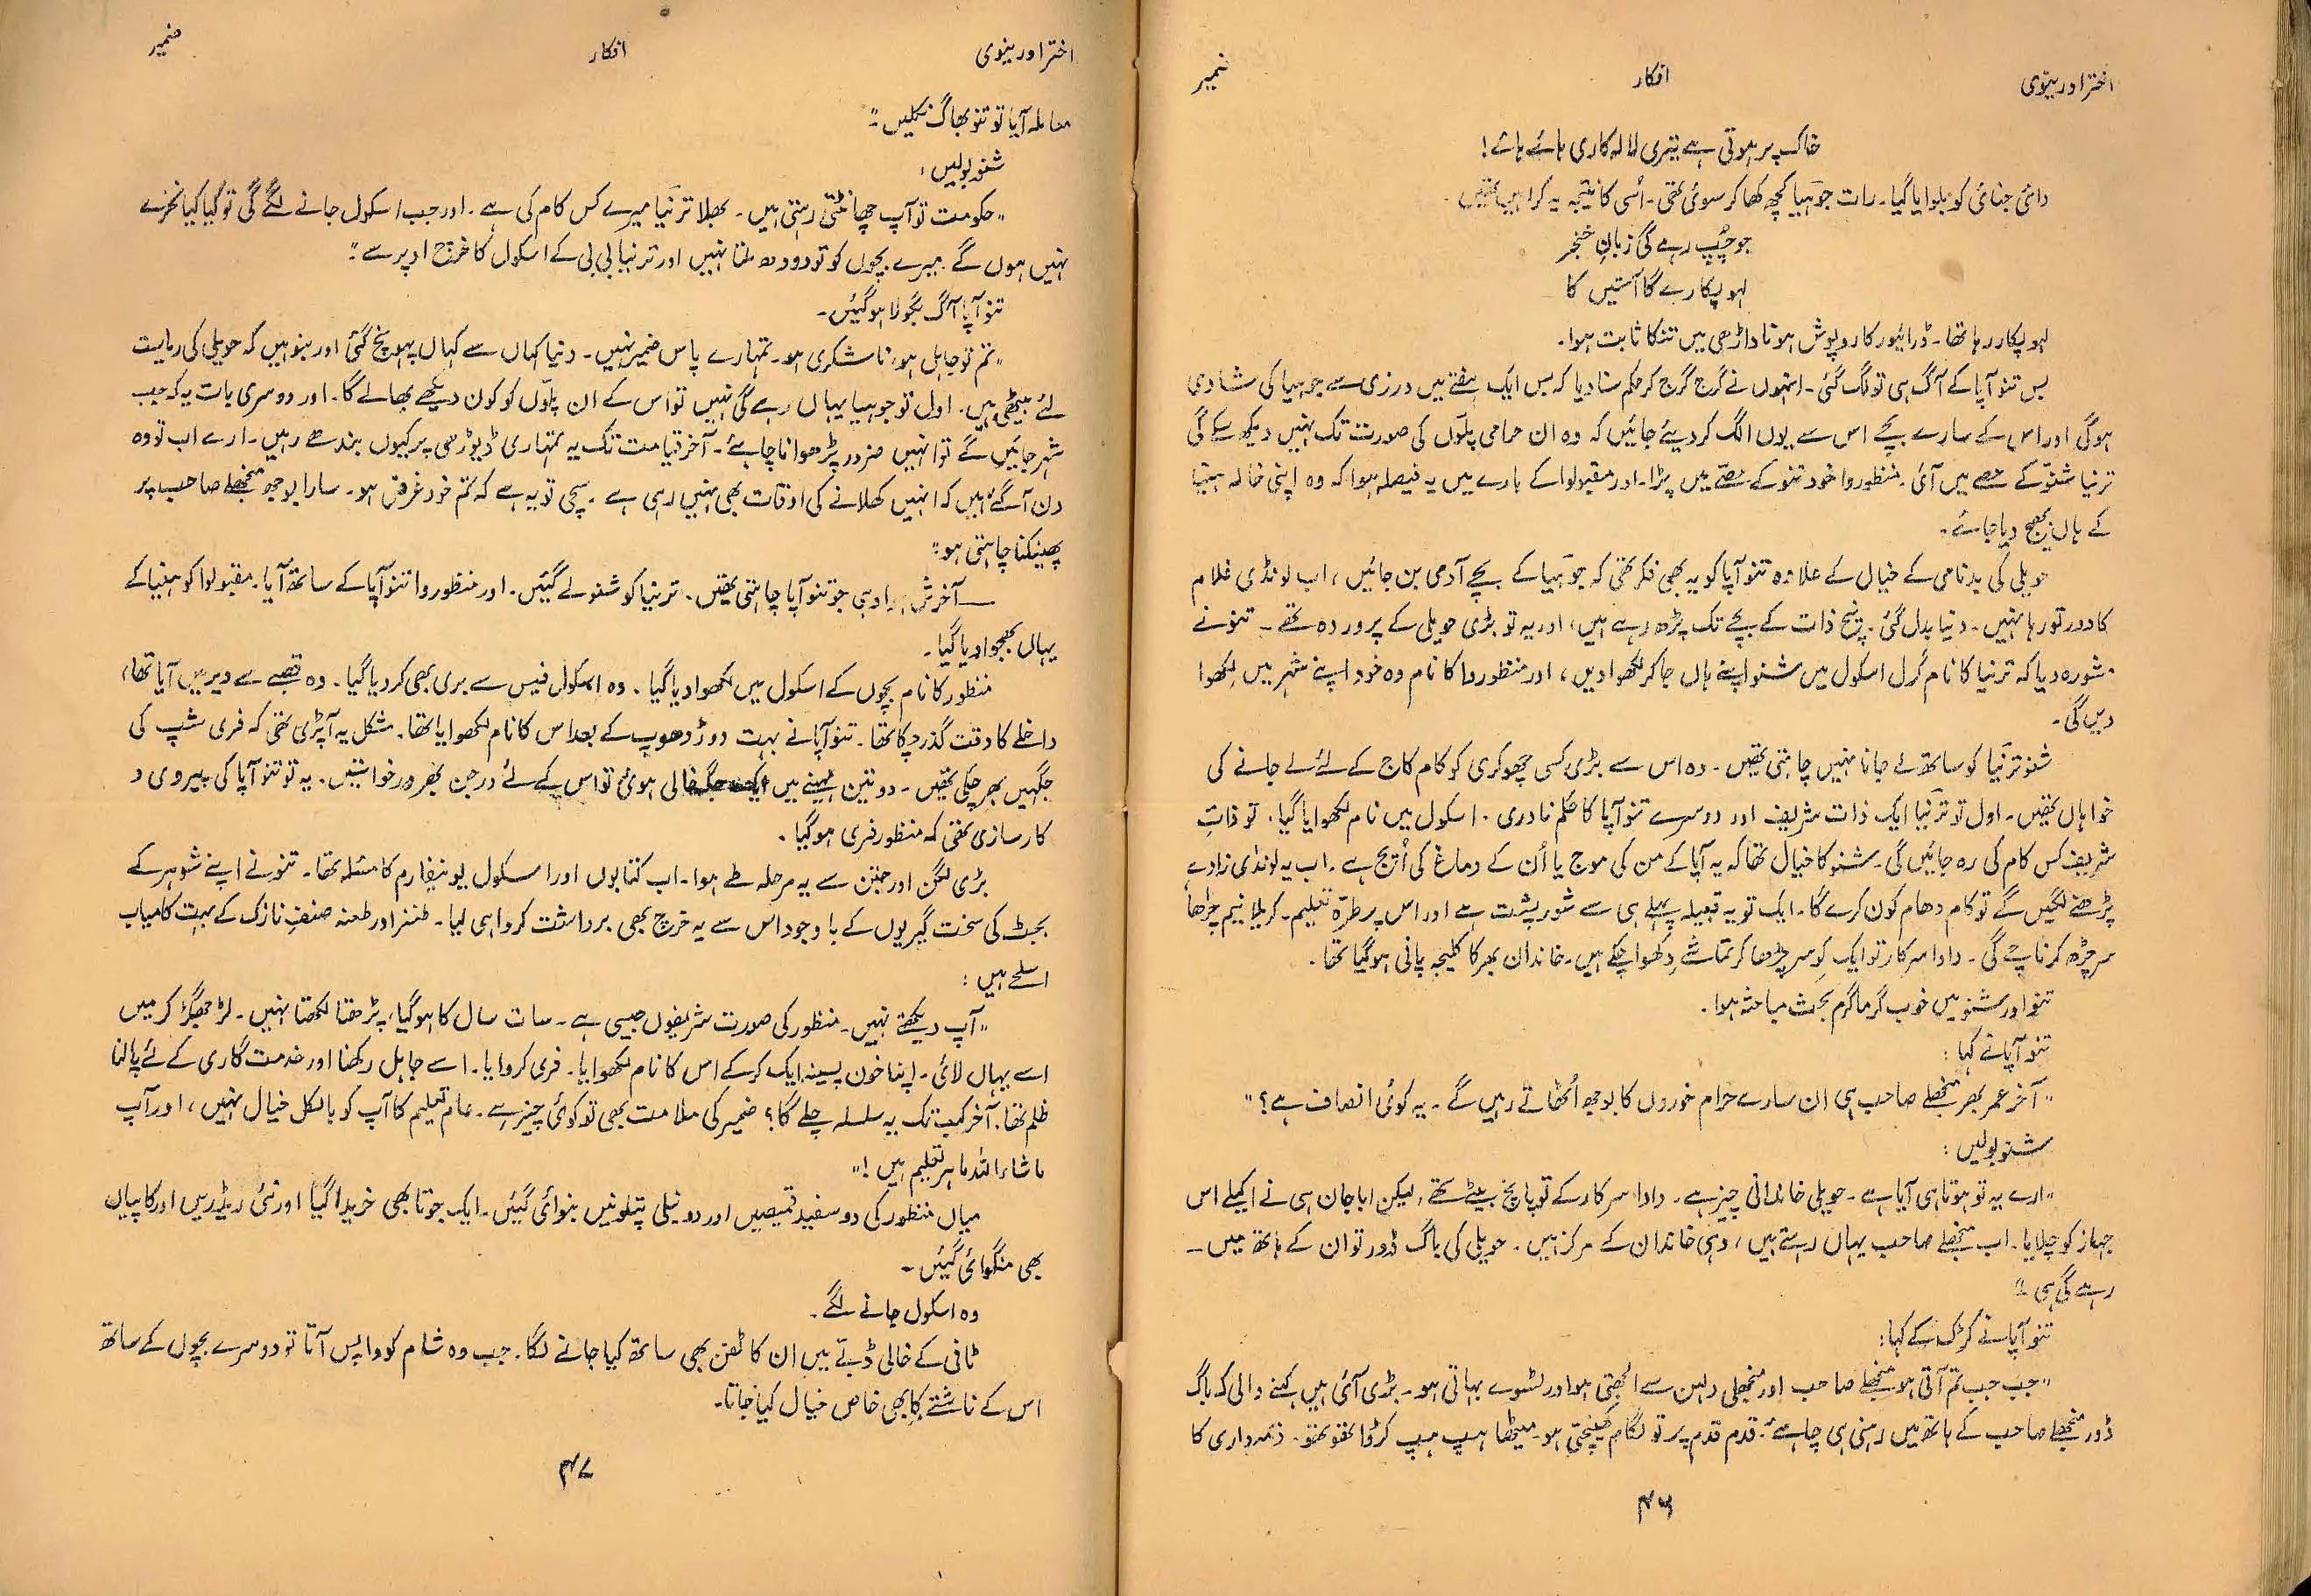 اختر اورینوی
افکار
ضمیر
خاک پر ہوتی ہے تیری لالہ کاری ہائے ہائے!
دائی جنائی کو بلوایا گیا۔ رات جوہیا کچھ کھا کر سوئی تھی۔ اسی کا نتیجہ یہ کراہیں تھیں۔
جو چُپ رہے گی زبانِ خنجر
لہو پکارے گا آستیں کا
لہو پکار رہا تھا۔ ڈرائیور کا روپوش ہونا داڑھی میں تنکا ثابت ہوا۔
بس تنو آپا کے آگ ہی تو لگ گئی۔ انہوں نے گرج گرج کر حکم سنا دیا کہ بس ایک ہفتے میں درزی سے جوہیا کی شادی
ہوگی اور اس کے سارے بچے اس سے یوں الگ کر دیئے جائیں کہ وہ ان حرامی پلوں کی صورت تک نہیں دیکھ سکے گی
ترنیا شنّو کے حصے میں آئی۔ منظوروا خود تنو کے حصّے میں پڑا۔ اور مقبولوا کے بارے میں یہ فیصلہ ہوا کہ وہ اپنی خالہ ہینیا
کے ہاں بھیج دیا جائے۔
حویلی کی بدنامی کے خیال کے علاوہ تنو آپا کو یہ بھی فکر تھی کہ جوہیا کے بچے آدمی بن جائیں، اب لونڈی غلام
کا دور تو رہا نہیں۔ دنیا بدل گئی۔ پنچ ذات کے بچے تک پڑھ رہے ہیں، اور یہ تو بڑی حویلی کے پروردہ تھے۔ تنو نے
مشورہ دیا کہ ترنیا کا نام گرل اسکول میں شنو اپنے ہاں جا کر لکھوا دیں، اور منظوروا کا نام وہ خود اپنے شہر میں لکھوا
دیں گی۔
شنو ترنیا کو ساتھ لے جانا نہیں چاہتی تھیں۔ وہ اس سے بڑی کسی چھوکری کو کام کاج کے لئے لے جانے کی
خواہاں تھیں۔ اول تو ترنیا ایک ذات شریف اور دوسرے تنو آپا کا حکم نادری۔ اسکول میں نام لکھوایا گیا۔ تو ذاتِ
شریف کس کام کی رہ جائیں گی۔ شنو کا خیال تھا کہ یہ آپا کے من کی موج یا اُن کے دماغ کی اُتج ہے۔ اب یہ لونڈی زادے
پڑھنے لگیں گے تو کام دھام کون کرے گا۔ ایک تو یہ قبیلہ پہلے ہی سے شور پشت ہے اور اس پر طرّہ تعلیم۔ کریلا نیم چڑھا
سر چڑھ کر ناچے گی۔ دادا سرکار تو ایک کو سر چڑھا کر تماشے دکھوا چکے ہیں۔ خاندان بھر کا کلیجہ پانی ہوگیا تھا۔
تنو اور شنو میں خوب گرما گرم بحث مباحثہ ہوا۔
تنو آپا نے کہا:
"آخر عمر بھر منجھلے صاحب ہی ان سارے حرام خوروں کا بوجھ اُٹھاتے رہیں گے۔ یہ کوئی انصاف ہے؟"
شنو بولیں:
"ارے یہ تو ہوتا ہی آیا ہے۔ حویلی خاندانی چیز ہے۔ دادا سرکار کے تو پانچ بیٹے تھے، لیکن ابا جان ہی نے اکیلے اس
جہاز کو چلایا۔ اب منجھلے صاحب یہاں رہتے ہیں، وہی خاندان کے مرکز ہیں۔ حویلی کی باگ ڈور تو ان کے ہاتھ میں۔
رہے گی ہی۔"
تنو آپا نے کڑک کے کہا:
"جب جب تم آتی ہو منجھلے صاحب اور منجھلی دلہن سے الجھتی ہو اور ٹسوے بہاتی ہو۔ بڑی آئی ہیں کہنے والی کہ باگ
ڈور منجھلے صاحب کے ہاتھ میں رہنی ہی چاہئے۔ قدم قدم پر تو لگام کھینچتی ہو۔ میٹھا ہپ ہپ کڑوا تھو تھو۔ ذمہ داری کا
۴۶
اختر اورینوی
افکار
ضمیر
معاملہ آیا تو تنو بھاگ نکلیں۔"
شنو بولیں:
"حکومت تو آپ چھانٹتی رہتی ہیں۔ بھلا ترنیا میرے کس کام کی ہے۔ اور جب اسکول جانے لگے گی تو کیا کیا نخرے
نہیں ہوں گے۔ میرے بچوں کو تو دودھ ملتا نہیں اور ترنیا بی بی کے اسکول کا خرچ اوپر سے۔"
تنو آپا آگ بگولا ہوگئیں۔
"تم تو جاہل ہو، ناشکری ہو۔ تمہارے پاس ضمیر نہیں۔ دنیا کہاں سے کہاں پہونچ گئی اور بنو ہیں کہ حویلی کی روایت
لئے بیٹھی ہیں۔ اول تو جوہیا یہاں رہے گی نہیں تو اس کے ان پلوں کو کون دیکھے بھالے گا۔ اور دوسری بات یہ کہ جب
شہر جائیں گے تو انہیں ضرور پڑھوانا چاہئے۔ آخر قیامت تک یہ تمہاری ڈیوڑھی پر کیوں بندھے رہیں۔ ارے اب تو وہ
دن آگئے ہیں کہ انہیں کھلانے کی اوقات بھی نہیں رہی ہے۔ سچی تو یہ ہے کہ تم خود غرض ہو۔ سارا بوجھ منجھلے صاحب پر
پھینکنا چاہتی ہو"
آخرش ہوا وہی جو تنو آپا چاہتی تھیں۔ ترنیا کو شنو لے گئیں۔ اور منظوروا تنو آپا کے ساتھ آیا۔ مقبولوا کو ہینیا کے
یہاں بھجوا دیا گیا۔
منظور کا نام بچوں کے اسکول میں لکھوا دیا گیا۔ وہ اسکول فیس سے بری بھی کر دیا گیا۔ وہ قصبے سے دیر میں آیا تھا،
داخلے کا وقت گذر چکا تھا۔ تنو آپا نے بہت دوڑ دھوپ کے بعد اس کا نام لکھوایا تھا۔ مشکل یہ آپڑی تھی کہ فری شپ کی
جگہیں بھر چکی تھیں۔ دو تین مہینے میں ایک جگہ خالی ہوئی تو اس کے لئے درجن بھر درخواستیں۔ یہ تو تنو آپا کی پیروی و
کارسازی تھی کہ منظور فری ہوگیا۔
بڑی لگن اور جتن سے یہ مرحلہ طے ہوا۔ اب کتابوں اور اسکول یونیفارم کا مسئلہ تھا۔ تنو نے اپنے شوہر کے
بجٹ کی سخت گیریوں کے باوجود اس سے یہ خرچ بھی برداشت کروا ہی لیا۔ طنز اور طعنہ صنفِ نازک کے بہت کامیاب
اسلحے ہیں:
"آپ دیکھتے نہیں۔ منظور کی صورت شریفوں جیسی ہے۔ سات سال کا ہوگیا، پڑھتا لکھتا نہیں۔ لڑ جھگڑ کر میں
اسے یہاں لائی۔ اپنا خون پسینہ ایک کرکے اس کا نام لکھوایا۔ فری کروایا۔ اسے جاہل رکھنا اور خدمت گاری کے لئے پالنا
ظلم تھا۔ آخر کب تک یہ سلسلہ چلے گا؟ ضمیر کی ملامت بھی تو کوئی چیز ہے۔ عام تعلیم کا آپ کو بالکل خیال نہیں، اور آپ
ماشاء اللہ ماہرِ تعلیم ہیں!"
میاں منظور کی دو سفید قمیصیں اور دو نیلی پتلونیں بنوائی گئیں۔ ایک جوتا بھی خریدا گیا اور نئی ریڈریں اور کاپیاں
بھی منگوائی گئیں۔
وہ اسکول جانے لگے۔
ٹافی کے خالی ڈبّے میں ان کا ٹفن بھی ساتھ کیا جانے لگا۔ جب وہ شام کو واپس آتا تو دوسرے بچوں کے ساتھ
اس کے ناشتے کا بھی خاص خیال کیا جاتا۔
۴۷